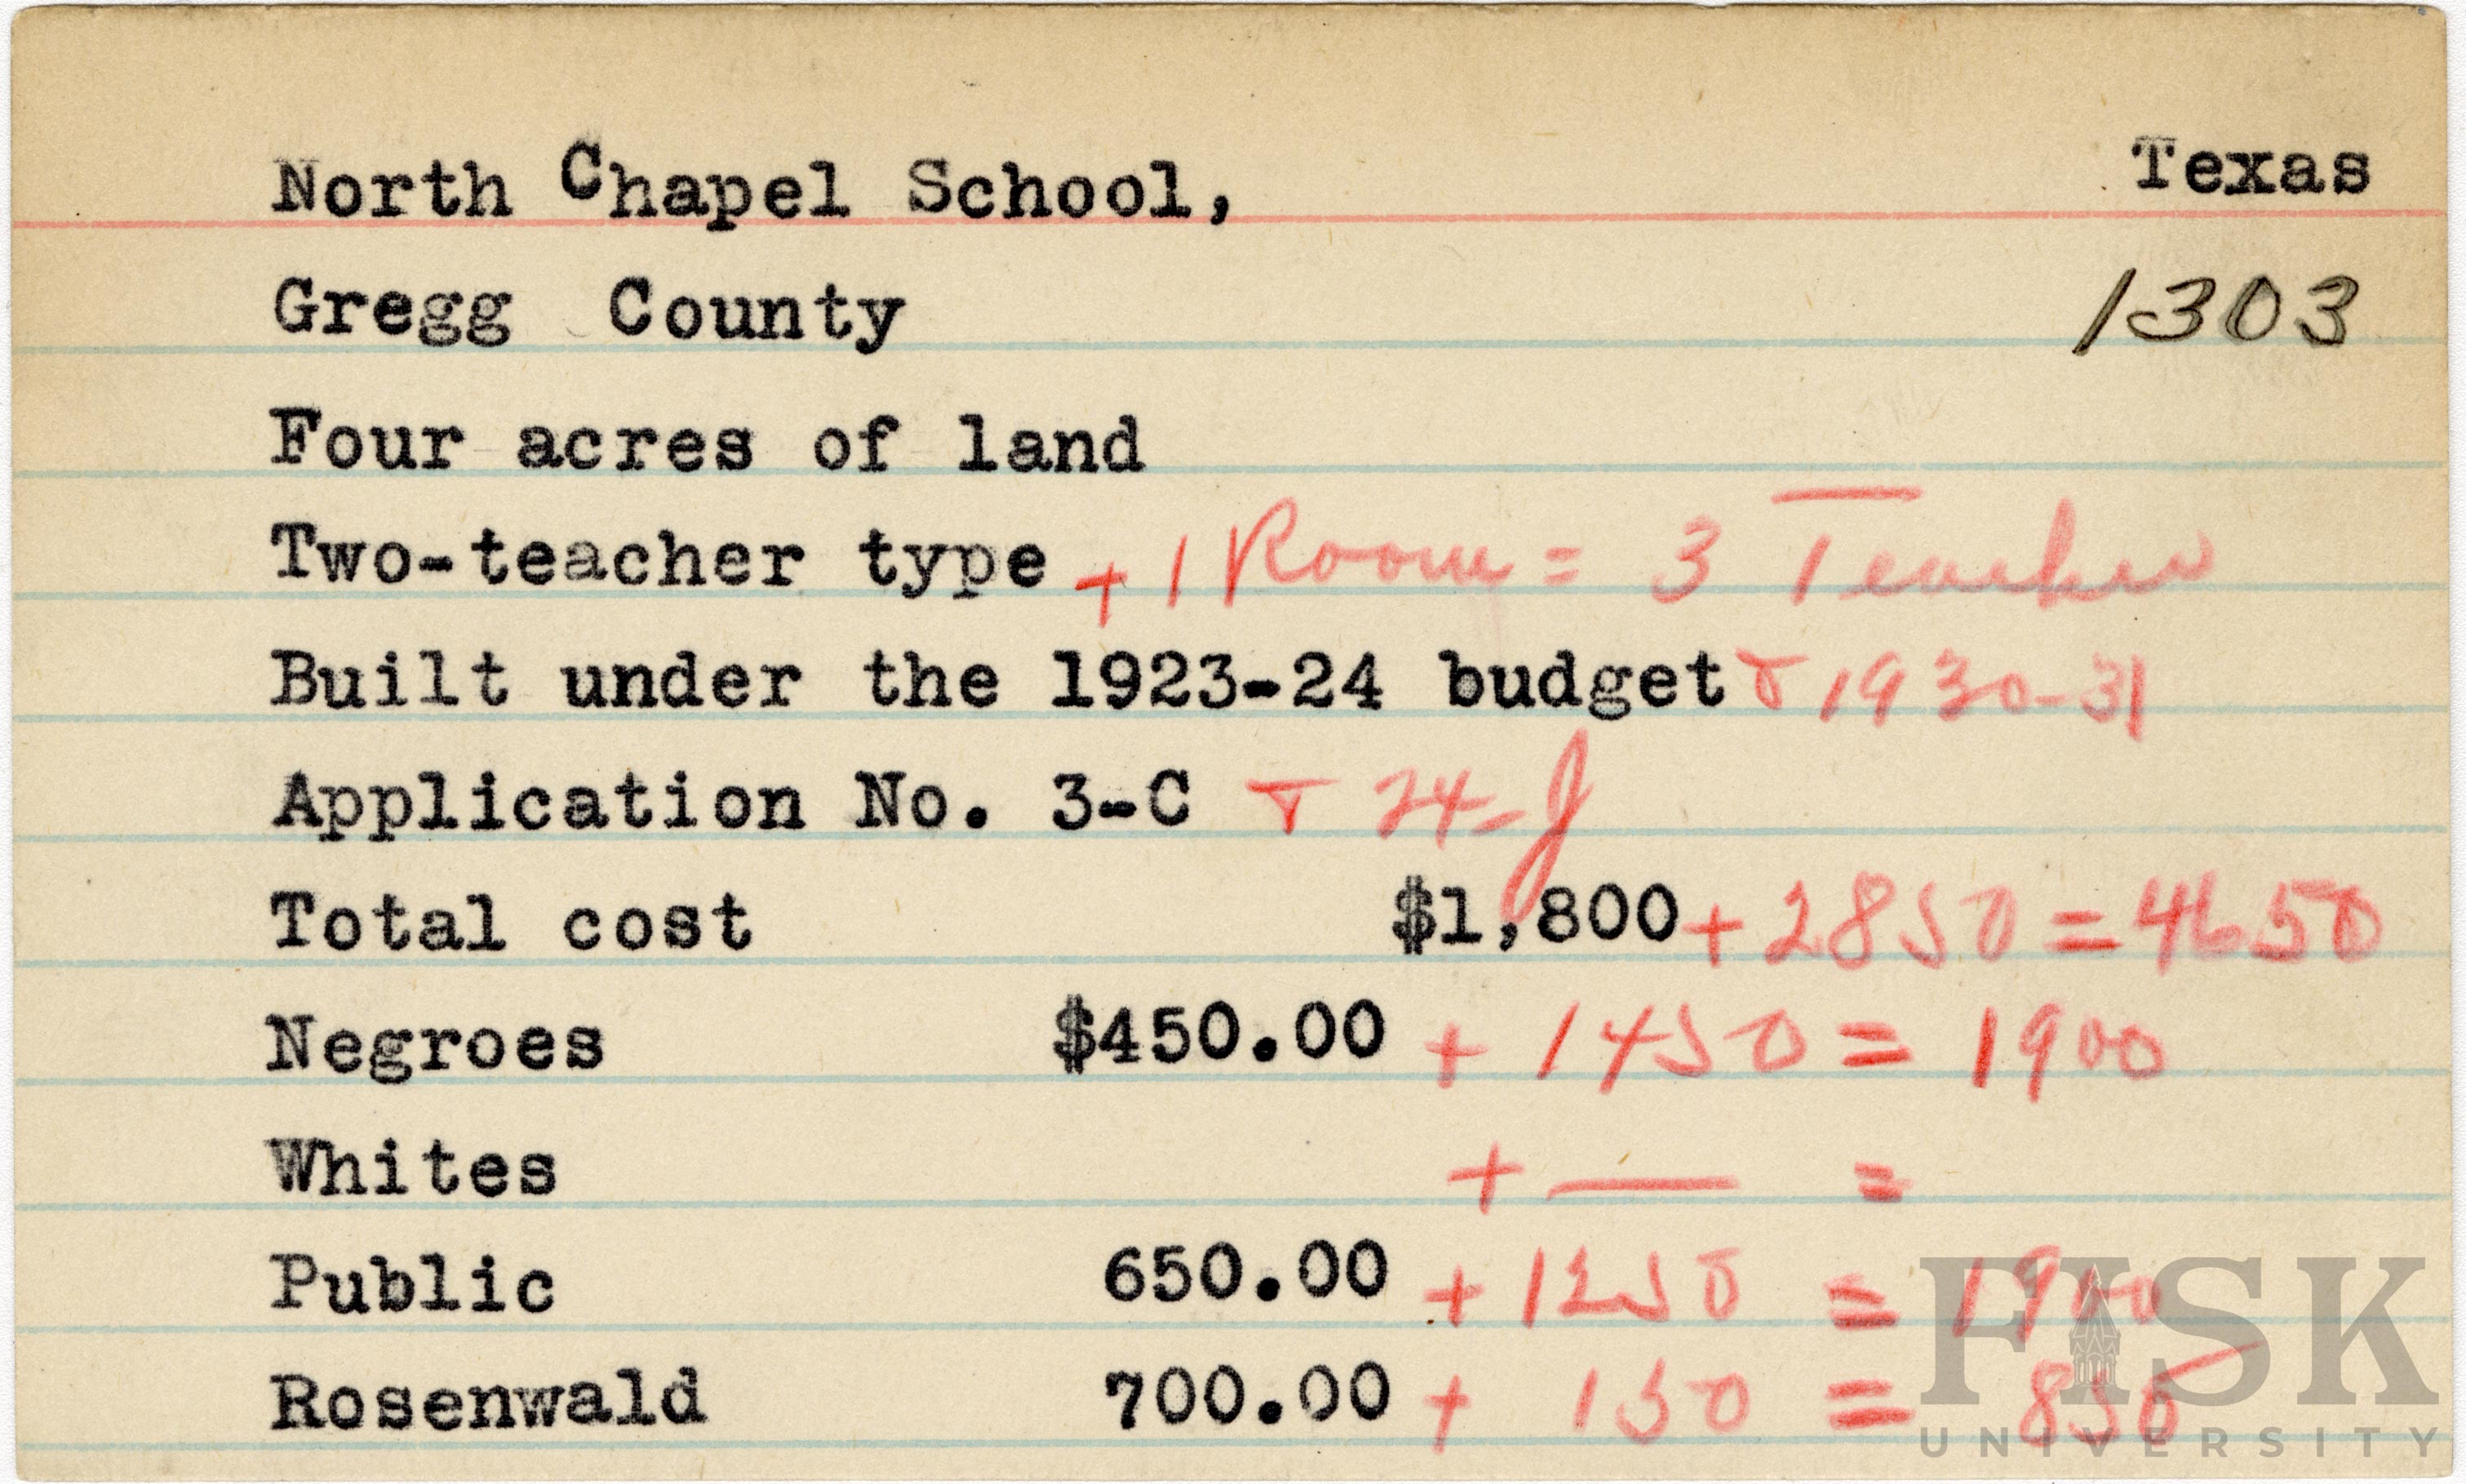 North Chapel School, Texas
Gregg County 1303
Four acres of land
Two-teacher type + 1 Room = 3 Teacher
Built under the 1923-24 budget & 1930-31
Application No. 3-C & 24-J
Total cost $1,800 + 2850 = 4650
Negroes $450.00 + 1450 = 1900
Whites + — =
Public 650.00 + 1250 = 1900
Rosenwald 700.00 + 150 = 850
FISK
UNIVERSITY